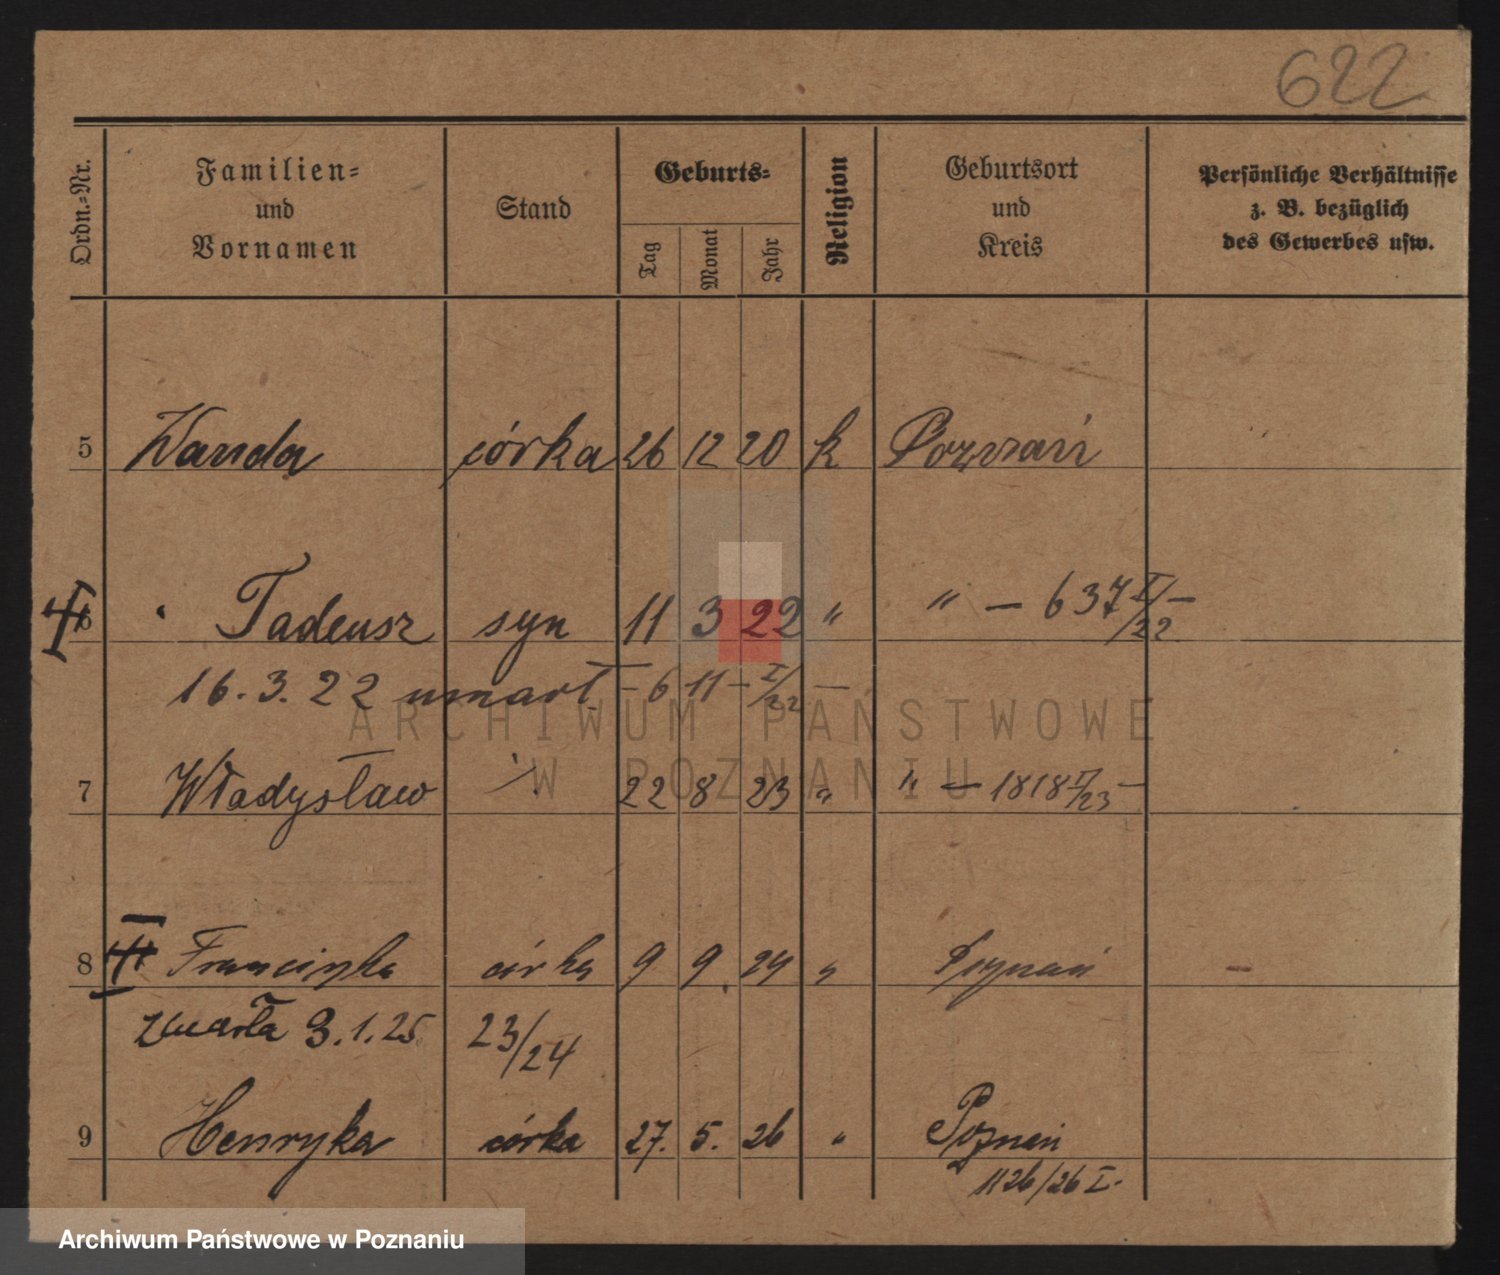 622
Ordn.-Nr. Familien- und Vornamen Stand Geburts- Tag Monat Jahr Religion Geburtsort und Kreis Persönliche Verhältnisse z. B. bezüglich des Gewerbes usw.
5 Wanda córka 26 12 20 k Poznań
6 Tadeusz syn 11 3 22 " " — 637 I/22 —
16. 3. 22 umarł — 611 — I/22 —
ARCHIWUM PAŃSTWOWE
W POZNANIU
7 Władysław " 22 8 23 " " — 1818 II/23 —
8 Franciszka córka 9 9 24 " Poznań —
zmarła 3.1.25 23/24
9 Henryka córka 27. 5. 26 " Poznań
1126/26 I.
Archiwum Państwowe w Poznaniu